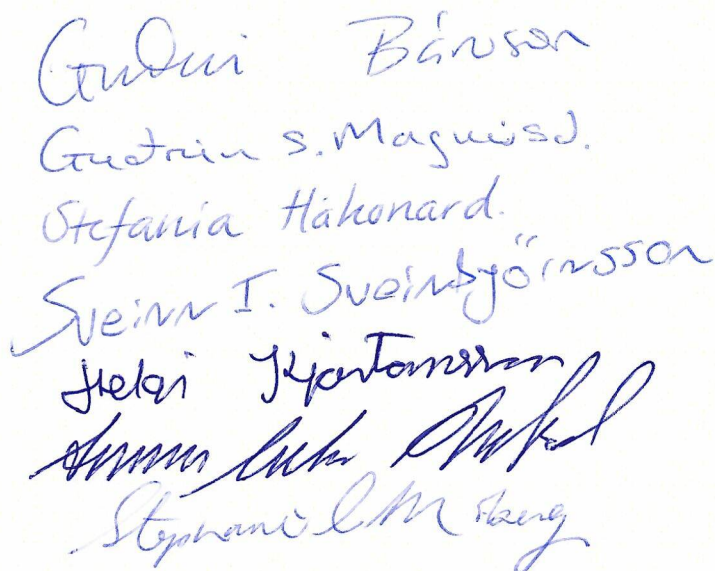 Guðni Bárusson
Guðrún S. Magnúsd.
Stefania Hákonard.
Sveinn I. Sveinbjörnsson
Helgi Kjartansson
Stephanie